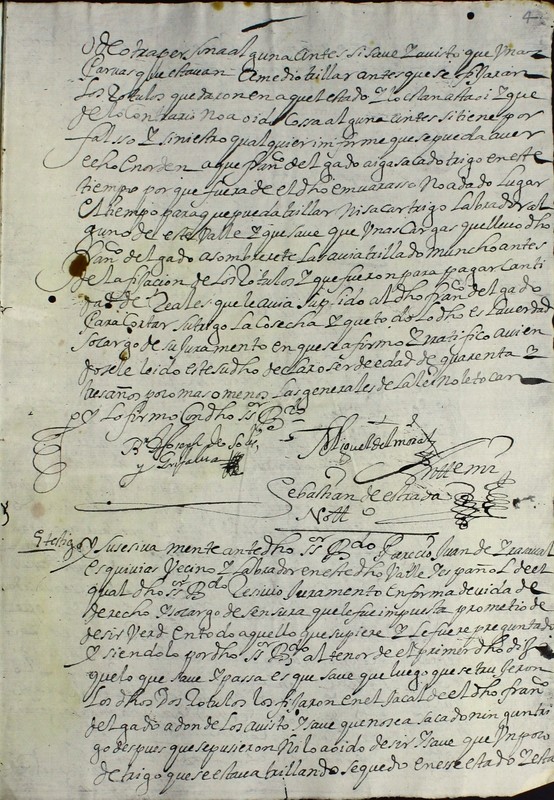 Vdo otra persona alguna antes si save y a visto que Unas
Parvas que estavan a medio trillar antes que se fijaran
los Rotulos quedaron en aquel estado y lo estan asta oi y que
de lo Contrario No a oido Cossa alguna antes si tiene por
falsso y siniestro qualquier informe que se pueda aver
echo en orden a que fran.co delgado aiga sacado trigo en este
tiempo por que fuera de el dho emvarasso No a dado Lugar
el tiempo para que pueda trillar Ni sacar trigo labrador al
guno de este Valle y que save que Unas Cargas que llevo dho
fran.co delgado a sombrerete las avia trillado muncho antes
de la fijacion de los Rotulos y que fueron para pagar Canti
dad de Reales que le avia suplido al dho fran.co delgado
Para Cortar su trigo La Cosecha y que todo lo dho es la verdad
so cargo de su juramento en que se afirmo y Ratifico avien
dosele leido este su dho declaro ser de edad de quarenta y
tres años poco mas o menos Las generales de la lei No le tocan
y Lo firmo Con dho S.or
B.r Joseph de Solis
y Grijalva
Miguel del moral
Ante mi
Sebastian de estrada
Nott.o
testigo
Y susesiva mente ante dho S.or parecio Juan de
esquivias Vecino y Labrador en este dho Valle español de el
qual dho S.or Resivio Juramento en forma devida de
derecho y so cargo de sensura que le fue impuesta prometio de
desir Verd en todo aquello que supiere y le fuere preguntado
y siendolo por dho S.or al tenor de el primer dho dijo
que lo que save y passa es que save que luego que se trujeron
Los dhos Dos Rotulos los fijaron en el Jacal de el dho fran.co
delgado a donde Los a visto y save que no se a sacado ningun tri
go despues que se pusieron Ni lo a oido desir y save que Un poco
de trigo que se estava trillando se quedo en ese estado y esta